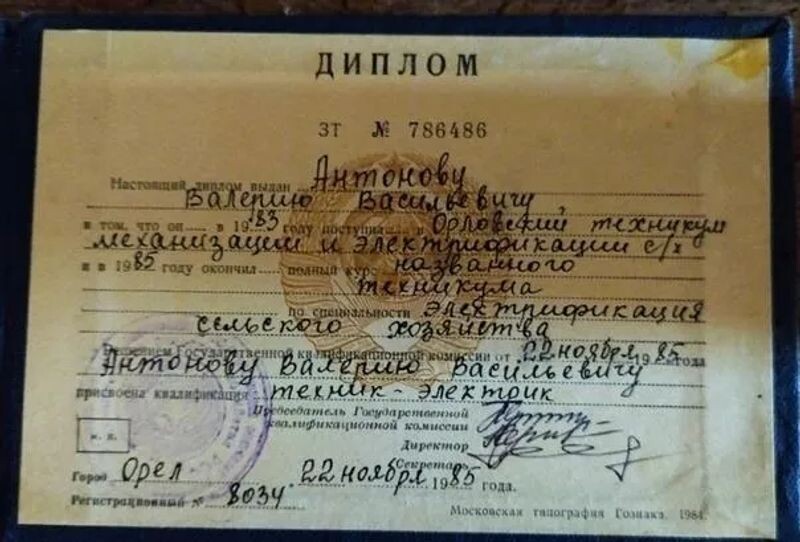 ДИПЛОМ
ЗТ № 786486
Настоящий диплом выдан Антонову
Валерию Васильевичу
в том, что он в 1983 году поступил в Орловский техникум
механизации и электрификации с/х
и в 1985 году окончил полный курс названного
техникума
по специальности Электрификация
сельского хозяйства
Решением Государственной квалификационной комиссии от 22 ноября 1985 года
Антонову Валерию Васильевичу
присвоена квалификация техник-электрик
Председатель Государственной
квалификационной комиссии
Директор
м. п.
Секретарь
Город Орел 22 ноября 1985 года.
Регистрационный № 8034
Московская типография Гознака. 1984.